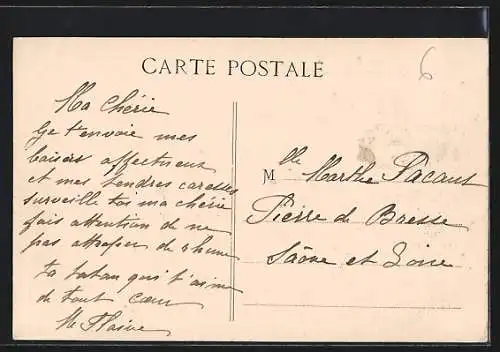 CARTE POSTALE
6
Ma chérie
Je t'envoie mes
baisers affectueux
et mes tendres caresses
surveille toi ma chérie
fais attention de ne
pas attraper de rhume
ta tatan qui t'aime
de tout cœur
M
Mlle Marthe Pacaut
Pierre de Bresse
Saône et Loire